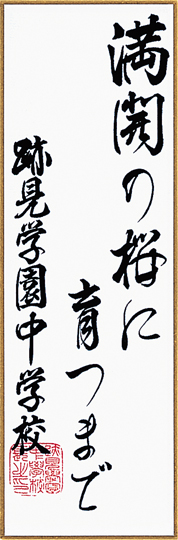 満開の桜に
育つまで
跡見学園中学校